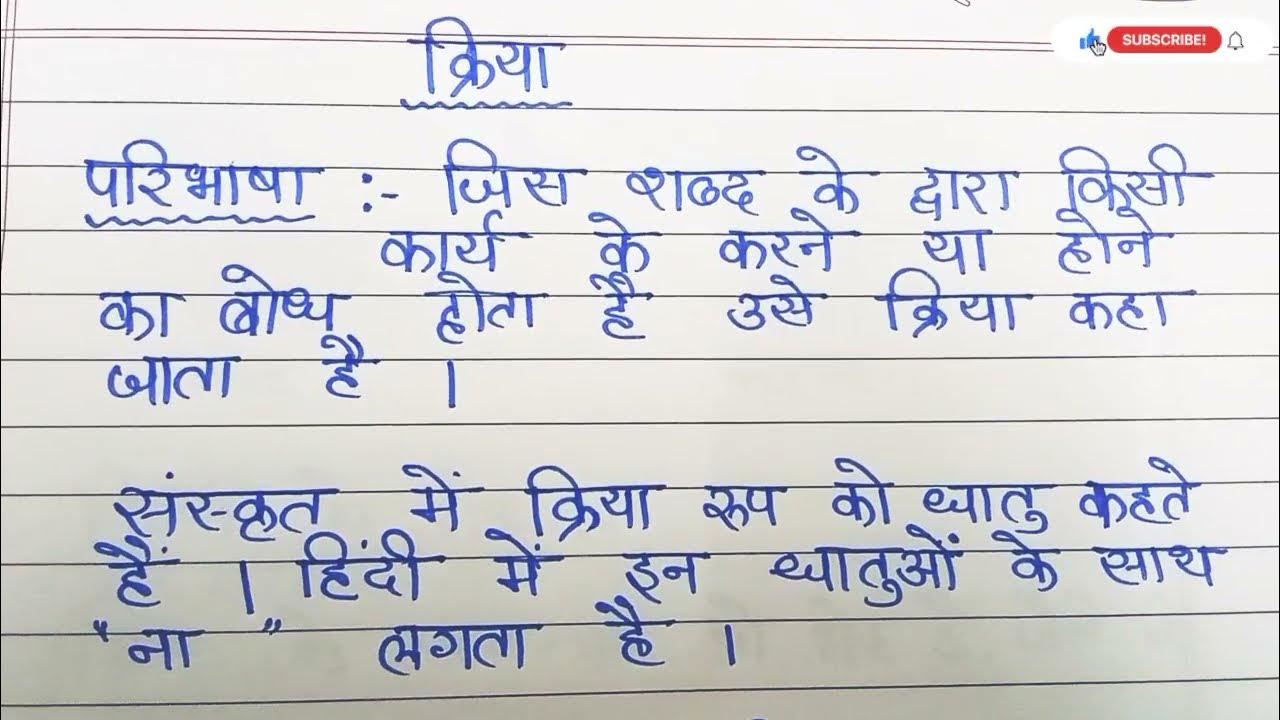 SUBSCRIBE!
क्रिया
परिभाषा :- जिस शब्द के द्वारा किसी
कार्य के करने या होने
का बोध होता है उसे क्रिया कहा
जाता है ।
संस्कृत में क्रिया रूप को धातु कहते
हैं । हिंदी में इन धातुओं के साथ
"ना" लगता है ।